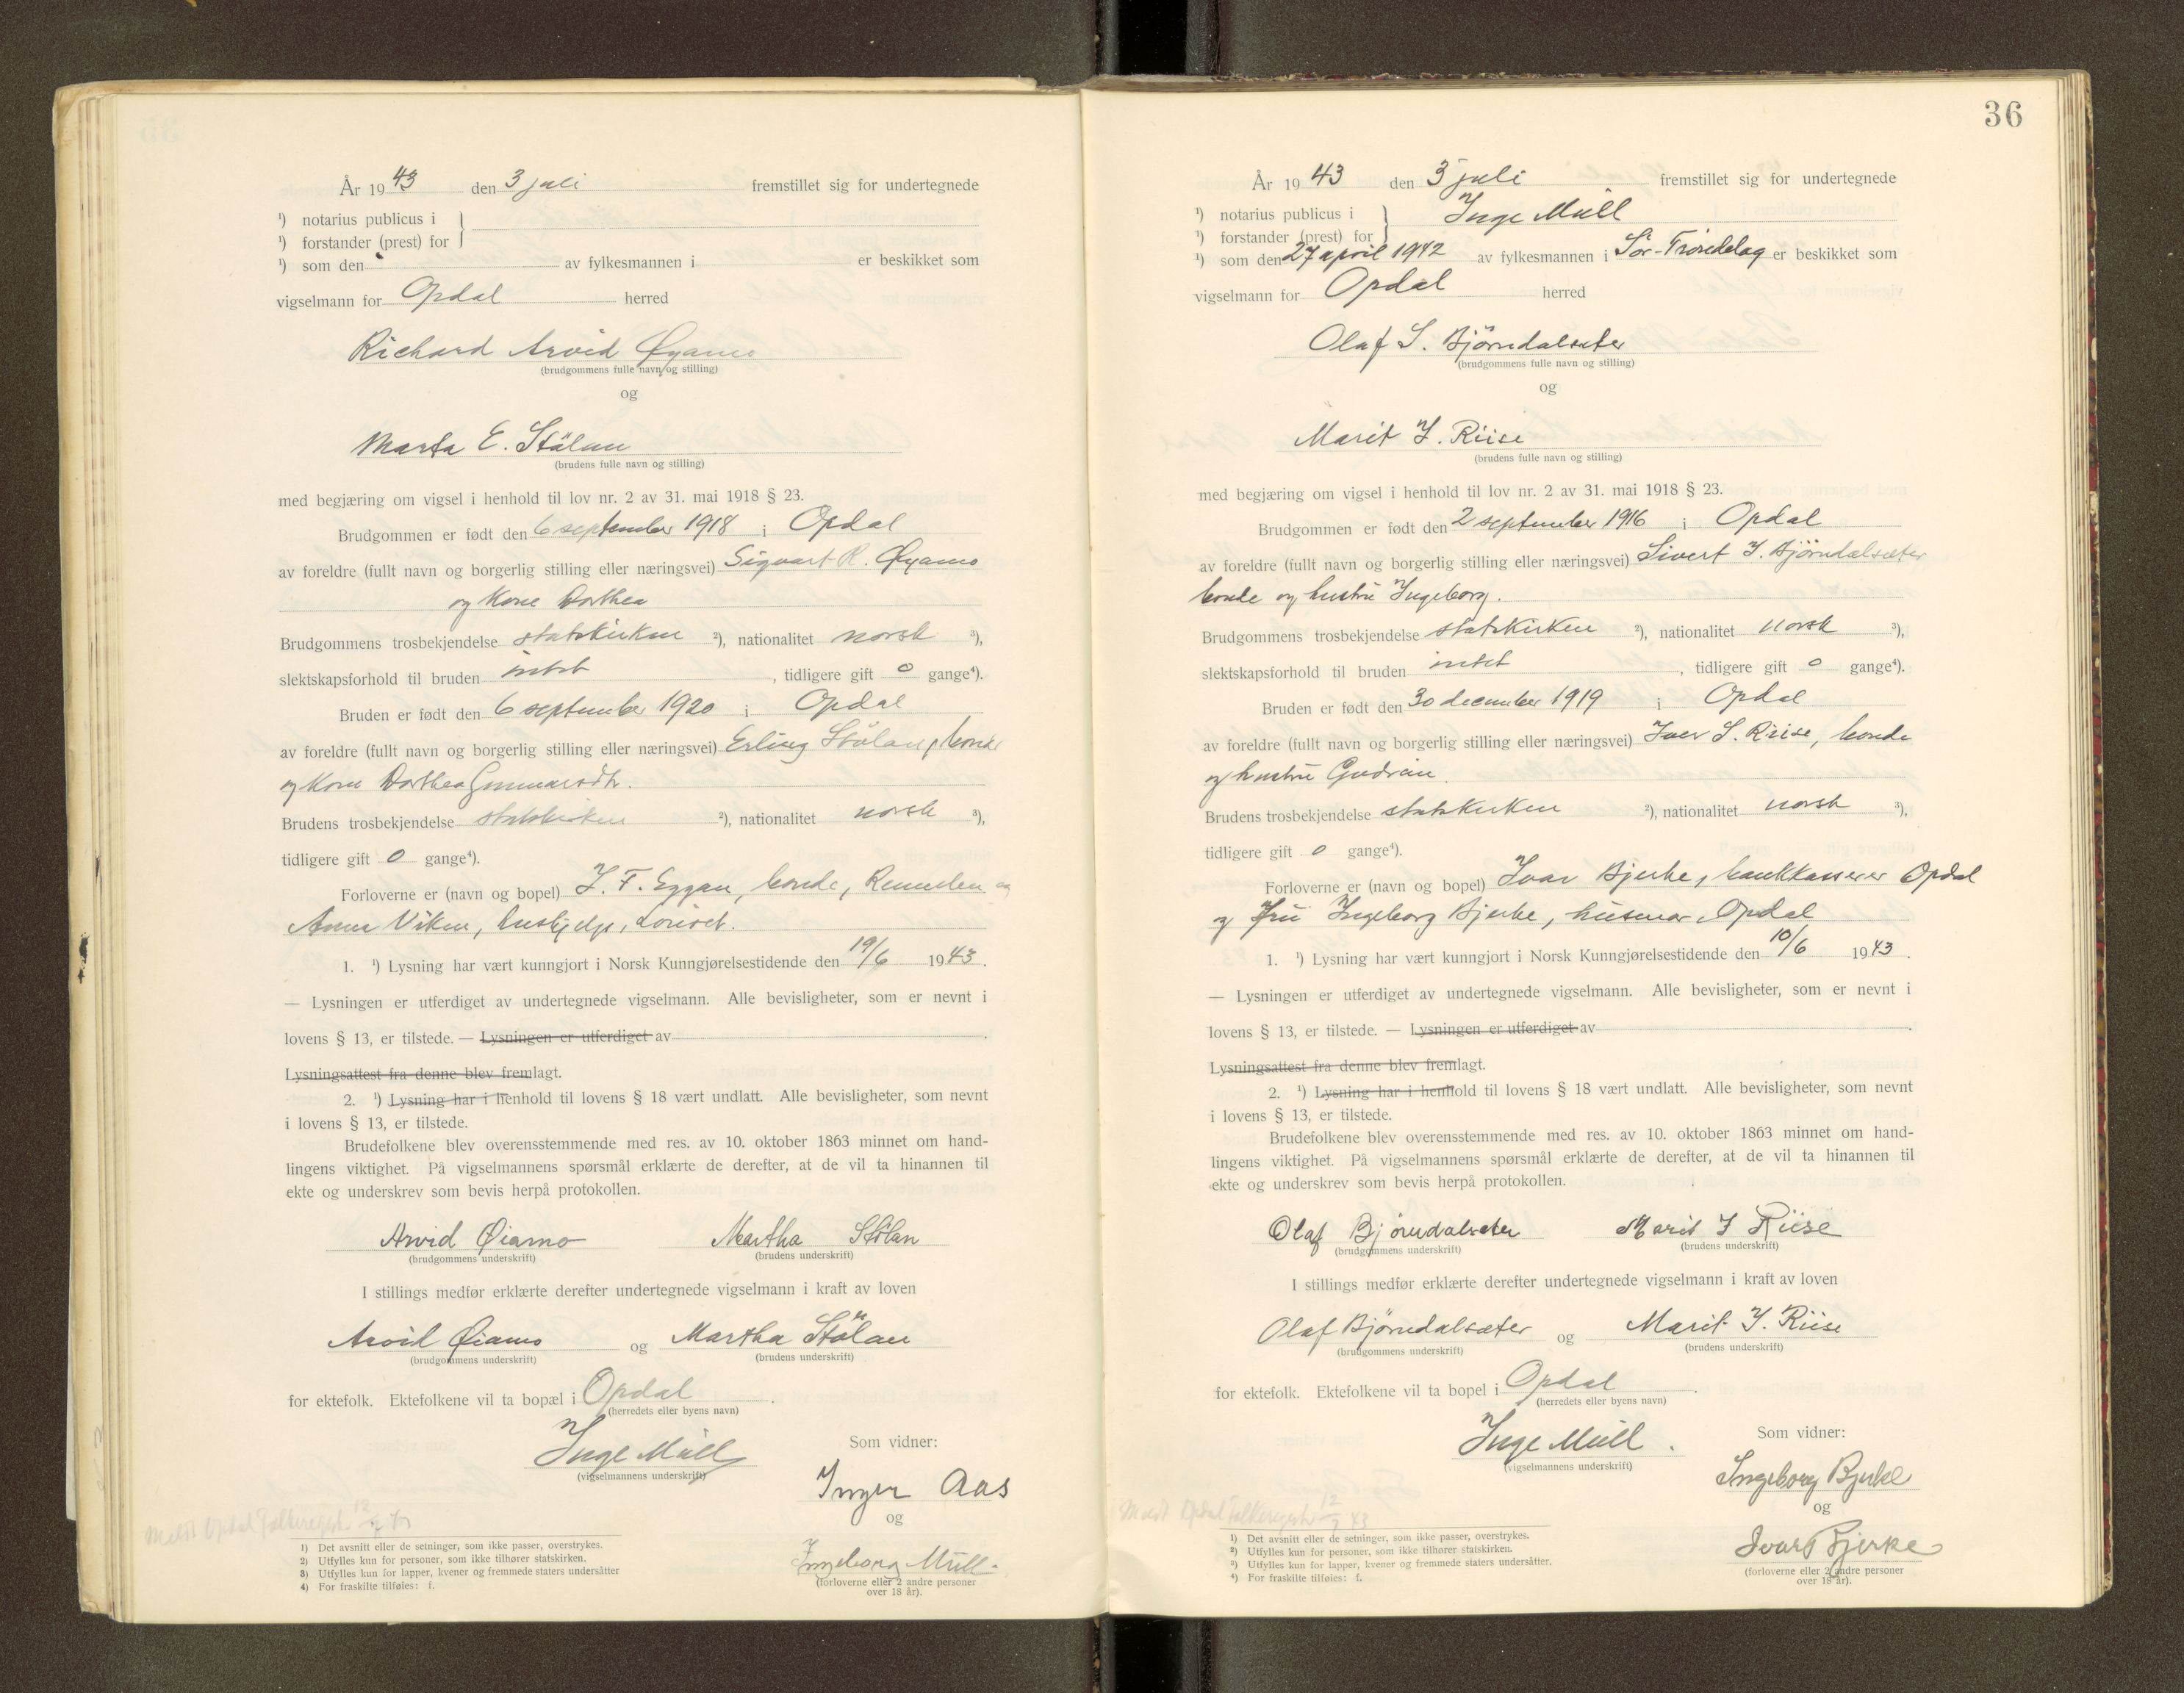 År 1943 den 3 juli fremstillet sig for undertegnede
¹) notarius publicus i
¹) forstander (prest) for
¹) som den av fylkesmannen i er beskikket som
vigselmann for Opdal herred
Richard Arvid Øyamo
(brudgommens fulle navn og stilling)
og
Marta E. Stölan
(brudens fulle navn og stilling)
med begjæring om vigsel i henhold til lov nr. 2 av 31. mai 1918 § 23.
Brudgommen er født den 6 september 1918 i Opdal
av foreldre (fullt navn og borgerlig stilling eller næringsvei) Sigvart R. Øyamo
og Kone Dorthea
Brudgommens trosbekjendelse statskirken ²), nationalitet norsk ³),
slektskapsforhold til bruden intet, tidligere gift 0 gange⁴).
Bruden er født den 6 september 1920 i Opdal
av foreldre (fullt navn og borgerlig stilling eller næringsvei) Erling Stölan, bonde
og Kone Dorthea Gunnarsdtr.
Brudens trosbekjendelse statskirken ²), nationalitet norsk ³),
tidligere gift 0 gange⁴).
Forloverne er (navn og bopel) I. F. Eggan, bonde, og
Anna Viken, hushjelp,
1. ¹) Lysning har vært kunngjort i Norsk Kunngjørelsestidende den 19/6 1943.
— Lysningen er utferdiget av undertegnede vigselmann. Alle bevisligheter, som er nevnt i
lovens § 13, er tilstede. — Lysningen er utferdiget av
Lysningsattest fra denne blev fremlagt.
2. ¹) Lysning har i henhold til lovens § 18 vært undlatt. Alle bevisligheter, som nevnt
i lovens § 13, er tilstede.
Brudefolkene blev overensstemmende med res. av 10. oktober 1863 minnet om hand-
lingens viktighet. På vigselmannens spørsmål erklærte de derefter, at de vil ta hinannen til
ekte og underskrev som bevis herpå protokollen.
Arvid Øiamo Martha Stölan
(brudgommens underskrift) (brudens underskrift)
I stillings medfør erklærte derefter undertegnede vigselmann i kraft av loven
Arvid Øiamo og Martha Stölan
(brudgommens underskrift) (brudens underskrift)
for ektefolk. Ektefolkene vil ta bopæl i Opdal.
(herredets eller byens navn)
Inge Müll
(vigselmannens underskrift)
Som vidner:
Inger Aas
og
Ingeborg Müll.
(forloverne eller 2 andre personer
over 18 år).
Meldt Opdal Folkeregister 12/7 43
1) Det avsnitt eller de setninger, som ikke passer, overstrykes.
2) Utfylles kun for personer, som ikke tilhører statskirken.
3) Utfylles kun for lapper, kvener og fremmede staters undersåtter
4) For fraskilte tilføies: f.
36
År 1943 den 3 juli fremstillet sig for undertegnede
¹) notarius publicus i Inge Müll
¹) forstander (prest) for
¹) som den 27 april 1942 av fylkesmannen i Sör-Tröndelag er beskikket som
vigselmann for Opdal herred
Olaf S. Bjørndalsæter
(brudgommens fulle navn og stilling)
og
Marit I. Riise
(brudens fulle navn og stilling)
med begjæring om vigsel i henhold til lov nr. 2 av 31. mai 1918 § 23.
Brudgommen er født den 2 september 1916 i Opdal
av foreldre (fullt navn og borgerlig stilling eller næringsvei) Sivert I. Bjørndalsæter
bonde og hustru Ingeborg.
Brudgommens trosbekjendelse statskirken ²), nationalitet norsk ³),
slektskapsforhold til bruden intet, tidligere gift 0 gange⁴).
Bruden er født den 30 december 1919 i Opdal
av foreldre (fullt navn og borgerlig stilling eller næringsvei) Iver S. Riise, bonde
og hustru Gudrun.
Brudens trosbekjendelse statskirken ²), nationalitet norsk ³),
tidligere gift 0 gange⁴).
Forloverne er (navn og bopel) Ivar Bjerke, bankkasserer Opdal
og fru Ingeborg Bjerke, husmor, Opdal
1. ¹) Lysning har vært kunngjort i Norsk Kunngjørelsestidende den 10/6 1943.
— Lysningen er utferdiget av undertegnede vigselmann. Alle bevisligheter, som er nevnt i
lovens § 13, er tilstede. — Lysningen er utferdiget av
Lysningsattest fra denne blev fremlagt.
2. ¹) Lysning har i henhold til lovens § 18 vært undlatt. Alle bevisligheter, som nevnt
i lovens § 13, er tilstede.
Brudefolkene blev overensstemmende med res. av 10. oktober 1863 minnet om hand-
lingens viktighet. På vigselmannens spørsmål erklærte de derefter, at de vil ta hinannen til
ekte og underskrev som bevis herpå protokollen.
Olaf Bjørndalsæter Marit I Riise
(brudgommens underskrift) (brudens underskrift)
I stillings medfør erklærte derefter undertegnede vigselmann i kraft av loven
Olaf Bjørndalsæter og Marit I. Riise
(brudgommens underskrift) (brudens underskrift)
for ektefolk. Ektefolkene vil ta bopel i Opdal.
(herredets eller byens navn)
Inge Müll.
(vigselmannens underskrift)
Som vidner:
Ingeborg Bjerke
og
Ivar Bjerke
(forloverne eller 2 andre personer
over 18 år).
Meldt Opdal Folkeregister 12/7 43
¹) Det avsnitt eller de setninger, som ikke passer, overstrykes.
²) Utfylles kun for personer, som ikke tilhører statskirken.
³) Utfylles kun for lapper, kvener og fremmede staters undersåtter.
⁴) For fraskilte tilføies: f.